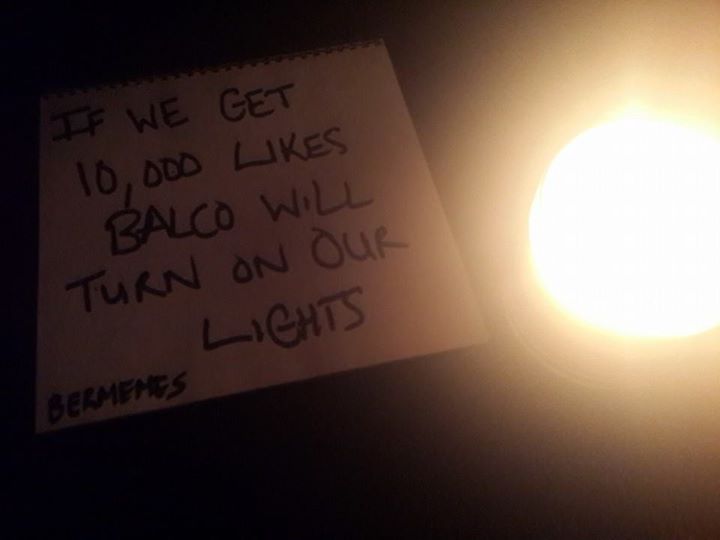 IF WE GET
10,000 LIKES
BALCO WILL
TURN ON OUR
LIGHTS
BERMEMES